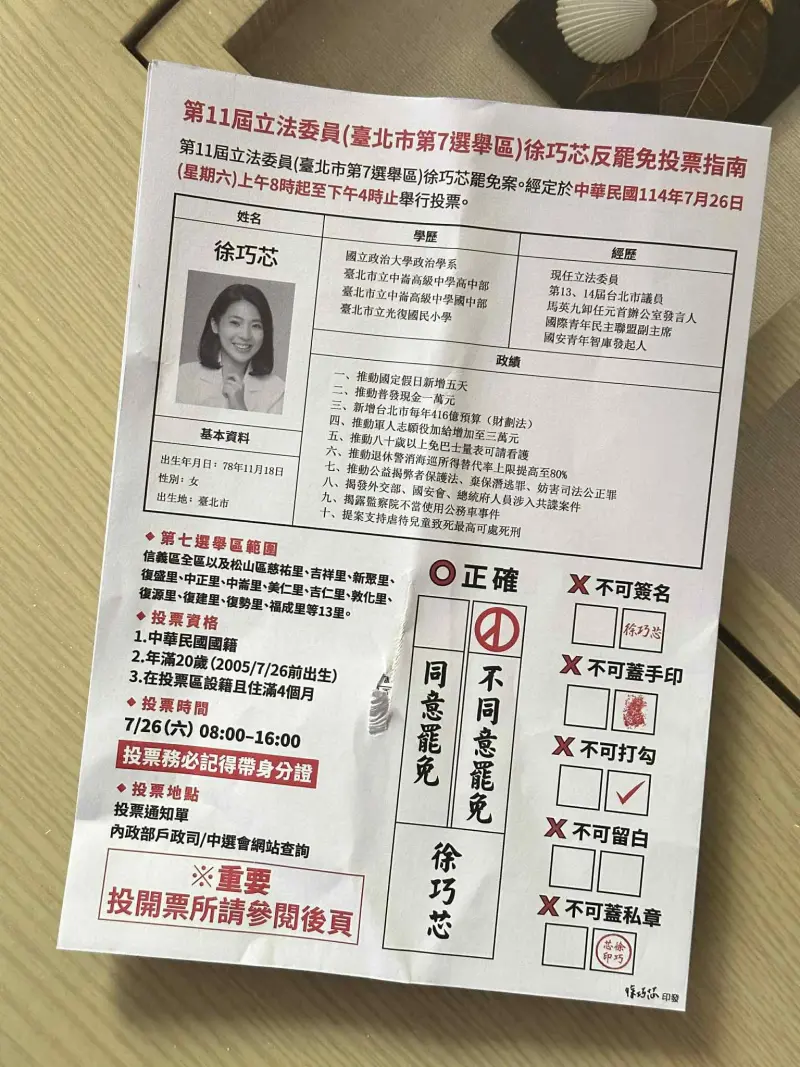 第11屆立法委員(臺北市第7選舉區)徐巧芯反罷免投票指南
第11屆立法委員(臺北市第7選舉區)徐巧芯罷免案。經定於中華民國114年7月26日
(星期六)上午8時起至下午4時止舉行投票。
姓名
徐巧芯
學歷
國立政治大學政治學系
臺北市立中崙高級中學高中部
臺北市立中崙高級中學國中部
臺北市立光復國民小學
經歷
現任立法委員
第13、14屆台北市議員
馬英九卸任元首辦公室發言人
國際青年民主聯盟副主席
國安青年智庫發起人
政績
一、推動國定假日新增五天
二、推動普發現金一萬元
三、新增台北市每年416億預算（財劃法）
四、推動軍人志願役加給增加至三萬元
五、推動八十歲以上免巴士量表可請看護
六、推動退休警消海巡所得替代率上限提高至80%
七、推動公益揭弊者保護法、棄保潛逃罪、妨害司法公正罪
八、揭發外交部、國安會、總統府人員涉入共諜案件
九、揭露監察院不當使用公務車事件
十、提案支持虐待兒童致死最高可處死刑
基本資料
出生年月日：78年11月18日
性別：女
出生地：臺北市
◆第七選舉區範圍
信義區全區以及松山區慈祐里、吉祥里、新聚里、
復盛里、中正里、中崙里、美仁里、吉仁里、敦化里、
復源里、復建里、復勢里、福成里等13里。
◆投票資格
1.中華民國國籍
2.年滿20歲（2005/7/26前出生）
3.在投票區設籍且住滿4個月
◆投票時間
7/26（六）08:00–16:00
投票務必記得帶身分證
◆投票地點
投票通知單
內政部戶政司/中選會網站查詢
※重要
投開票所請參閱後頁
正確
同意罷免
不同意罷免
徐巧芯
X 不可簽名
徐巧芯
X 不可蓋手印
X 不可打勾
X 不可留白
X 不可蓋私章
芯徐
印巧
徐巧芯 印發